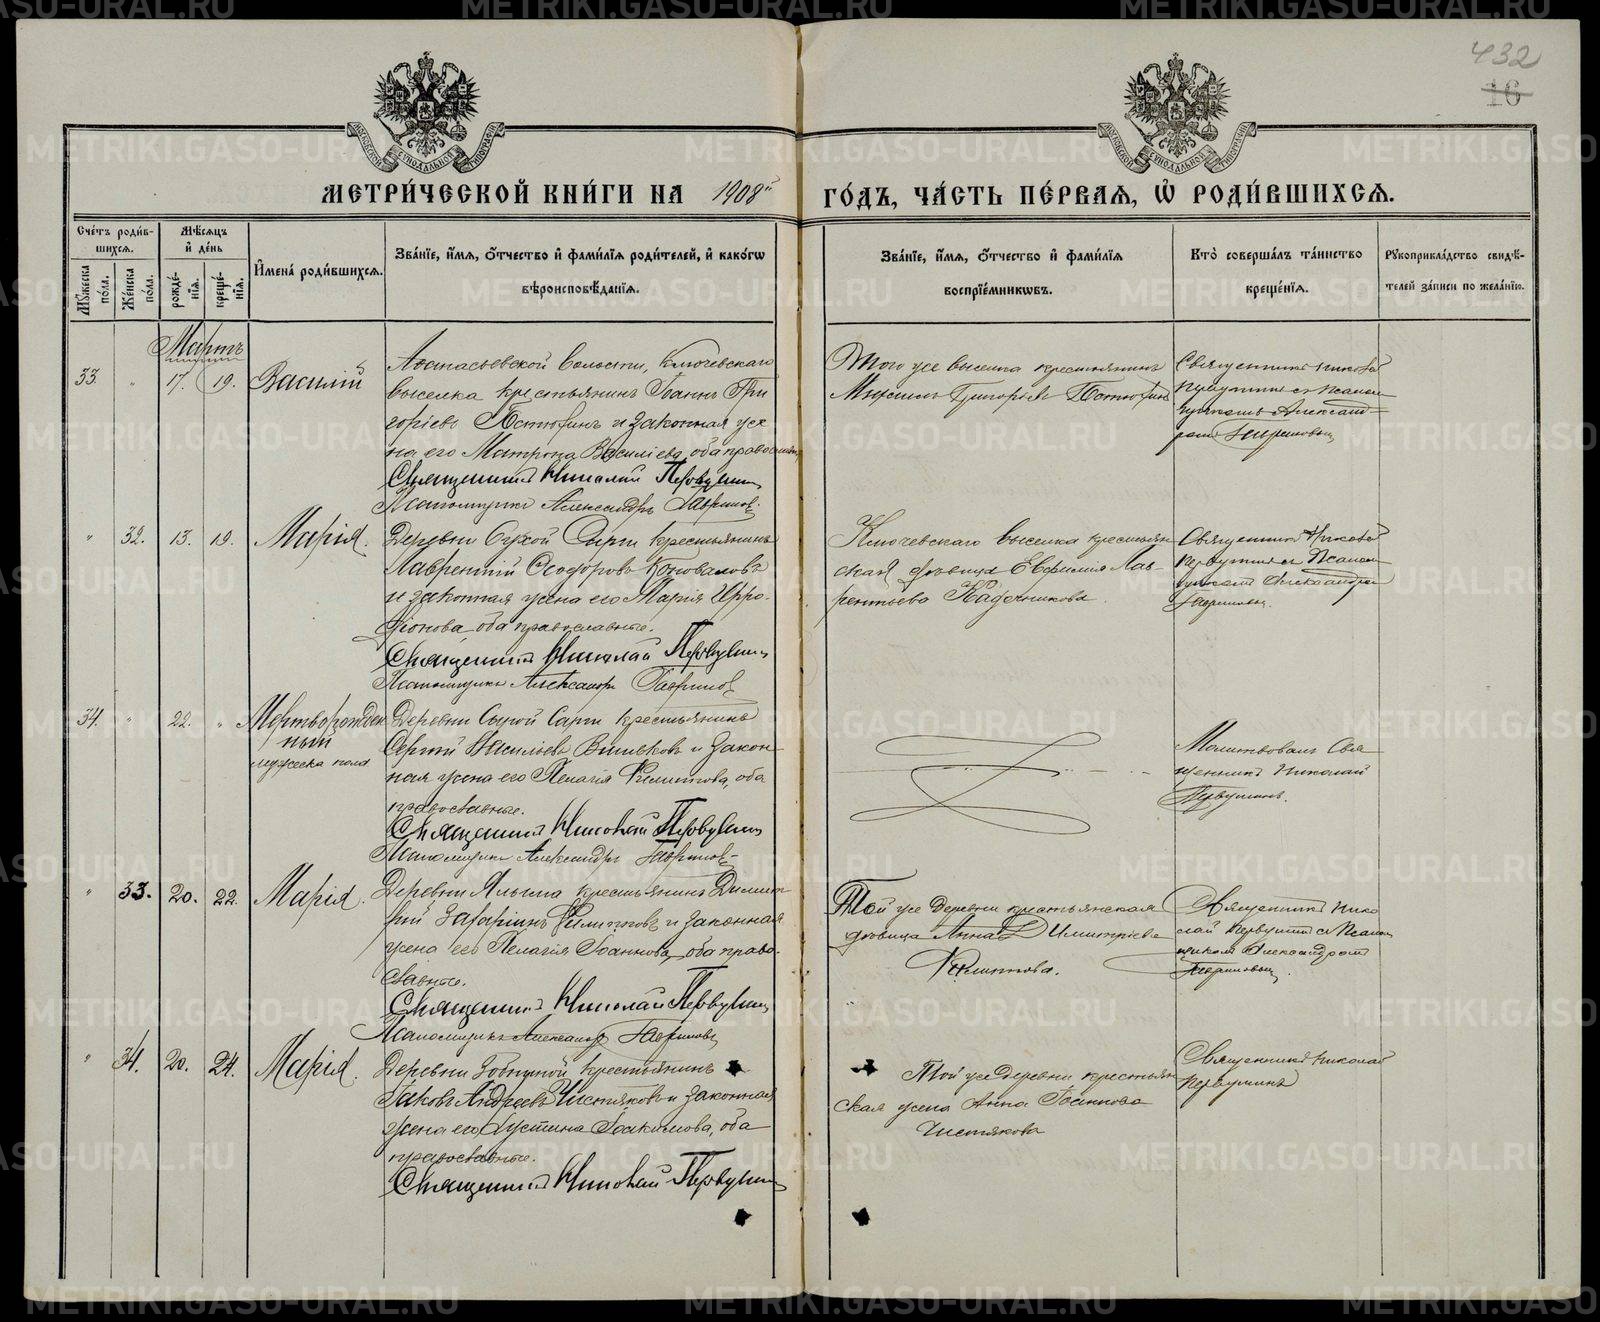 432
16
МОСКОВСКОЙ СѴНОДАЛЬНОЙ ТИПОГРАФІИ
МОСКОВСКОЙ СѴНОДАЛЬНОЙ ТИПОГРАФІИ
МЕТРИ́ЧЕСКОЙ КНИ́ГИ НА 1908й ГО́ДЪ, ЧА́СТЬ ПЕ́РВАѦ, Ѽ РОДИ́ВШИХСѦ.
Сче́тъ роди́в-
шихсѧ.
Мꙋ́жеска по́ла.
Же́нска по́ла.
Мѣ́сѧцъ
и҆ де́нь
рожде́-
нїѧ.
креще́-
нїѧ.
И҆мена̀ роди́вшихсѧ.
Зва́нїе, и҆́мѧ, ѻ҆́тчество и҆ фами́лїѧ роди́телей, и҆ како́гѡ
вѣроисповѣ́данїѧ.
Зва́нїе, и҆́мѧ, ѻ҆́тчество и҆ фами́лїѧ
воспрїе́мникѡвъ.
Кто̀ соверша́лъ та́инство
креще́нїѧ.
Рꙋкоприкла́дство свидѣ́-
телей за́писи по жела́нїю.
Мартъ
33. " 17. 19. Василій
Аѳанасьевской волости, Ключевскаго
выселка крестьянинъ Іоаннъ Гри
горіевъ и законная же
на его Матрона Василіева, оба православн
Священникъ Николай Первушинъ
Псаломщикъ Александръ Гавриловъ.
Того же выселка крестьянинъ
Григорьевъ
Священникъ Николай
Первушинъ съ Псалом
щикомъ Александ-
ромъ Гавриловымъ
" 32. 13. 19. Марія.
Деревни Сухой Сарги крестьянинъ
Лаврентій Ѳеодоровъ Коноваловъ
и законная жена его Марія Иро-
діонова, оба православные.
Священникъ Николай Первушинъ
Псаломщикъ Александръ Гавриловъ
Ключевскаго выселка крестьян
ская дѣвица Евфимія Лав-
рентьева
Священникъ Николай
Первушинъ съ Псалом
щикомъ Александромъ
Гавриловымъ.
34. " 22. " Мертворожден
ный
мужеска пола
Деревни Сухой Сарги крестьянинъ
Сергій Васильевъ и закон
ная жена его Пелагія Филиппова, оба
православные.
Священникъ Николай Первушинъ
Псаломщикъ Александръ Гавриловъ
Молитвовалъ Свя
щенникъ Николай
Первушинъ.
" 33. 20. 22. Марія.
Деревни крестьянинъ Димит
рій Захаріинъ Филипповъ и законная
жена его Пелагія Іоаннова, оба право-
славные.
Священникъ Николай Первушинъ
Псаломщикъ Александръ Гавриловъ
Той же деревни крестьянская
дѣвица Анна Димитріева
Филиппова.
Священникъ Нико
лай Первушинъ съ Псалом
щикомъ Александромъ
Гавриловымъ.
" 34. 20. 24. Марія.
Деревни крестьянинъ
Іаковъ Андреевъ Чистяковъ и законная
жена его Іустина Іоакимова, оба
православные.
Священникъ Николай Первушинъ
Той же деревни крестьян
ская жена Анна Іоаннова
Чистякова
Священникъ Николай
Первушинъ
METRIKI.GASO-URAL.RU